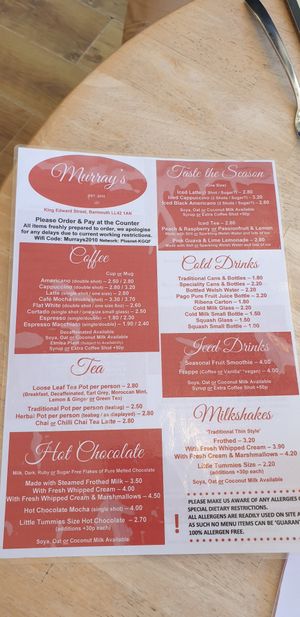 Murray's
King Edward Street, Barmouth LL42 1AN
Please Order & Pay at the Counter
All items freshly prepared to order, we apologise
for any delays due to current working restrictions.
Wifi Code: Murrays2010 Network: Plusnet-KGQF
Coffee
Cup or Mug
Americano (double shot) – 2.50 / 2.80
Cappuccino (double shot) – 2.80 / 3.20
Latte (single shot / one size) – 2.80
Café Mocha (double shot) – 3.30 / 3.70
Flat White (double shot / one size 8oz) – 2.60
Cortado (single shot / one size small glass) – 2.50
Espresso (single/double) – 1.80 / 2.00
Espresso Macchiato (single/double) – 1.90 / 2.40
Decaffeinated Available
Soya, Oat or Coconut Milk Available
Syrup or Extra Coffee Shot +50p
Tea
Loose Leaf Tea Pot per person – 2.80
(Breakfast, Decaffeinated, Earl Grey, Moroccan Mint,
Lemon & Ginger or Green Tea)
Traditional Pot per person (teabag) – 2.50
Herbal Pot per person (teabag / as displayed) – 2.80
Chai or Chilli Chai Tea Latte – 2.80
Hot Chocolate
Milk, Dark, Ruby or Sugar Free Flakes of Pure Melted Chocolate
Made with Steamed Frothed Milk – 3.50
With Fresh Whipped Cream – 4.00
With Fresh Whipped Cream & Marshmallows – 4.50
Hot Chocolate Mocha (single shot) – 4.00
Little Tummies Size Hot Chocolate – 2.70
(additions +30p each)
Soya, Oat or Coconut Milk Available
Taste the Season
(One Size)
Iced Latte (1 Shot / Syrup?) – 2.80
Iced Cappuccino (2 Shots / Syrup?) – 3.20
Iced Black Americano (2 Shots / Syrup?) – 2.80
Soya, Oat or Coconut Milk Available
Syrup or Extra Coffee Shot +50p
Iced Tea – 2.80
Peach & Raspberry or Passionfruit & Lemon
Pink Guava & Lime Lemonade – 2.80
Cold Drinks
Traditional Cans & Bottles – 1.80
Speciality Cans & Bottles – 2.20
Bottled Welsh Water – 1.20
Pago Pure Fruit Juice Bottle – 2.20
Ribena Carton – 1.80
Cold Milk Glass – 2.20
Cold Milk Small Bottle – 1.50
Squash Glass – 1.50
Squash Small Bottle – 1.00
Iced Drinks
Seasonal Fruit Smoothie – 4.00
Frappe (Coffee or Vanilla* *vegan) – 4.00
Soya, Oat or Coconut Milk Available
Syrup or Extra Coffee Shot +50p
Milkshakes
'Traditional Thin Style'
Frothed – 3.20
With Fresh Whipped Cream – 3.90
With Fresh Whipped Cream & Marshmallows – 4.20
Little Tummies Size – 2.20
(additions +30p each)
Soya, Oat or Coconut Milk Available
!
PLEASE MAKE US AWARE OF ANY ALLERGIES
SPECIAL DIETARY RESTRICTIONS.
ALL ALLERGENS ARE READILY USED ON SITE A
AS SUCH NO MENU ITEMS CAN BE 'GUARAN
100% ALLERGEN FREE.